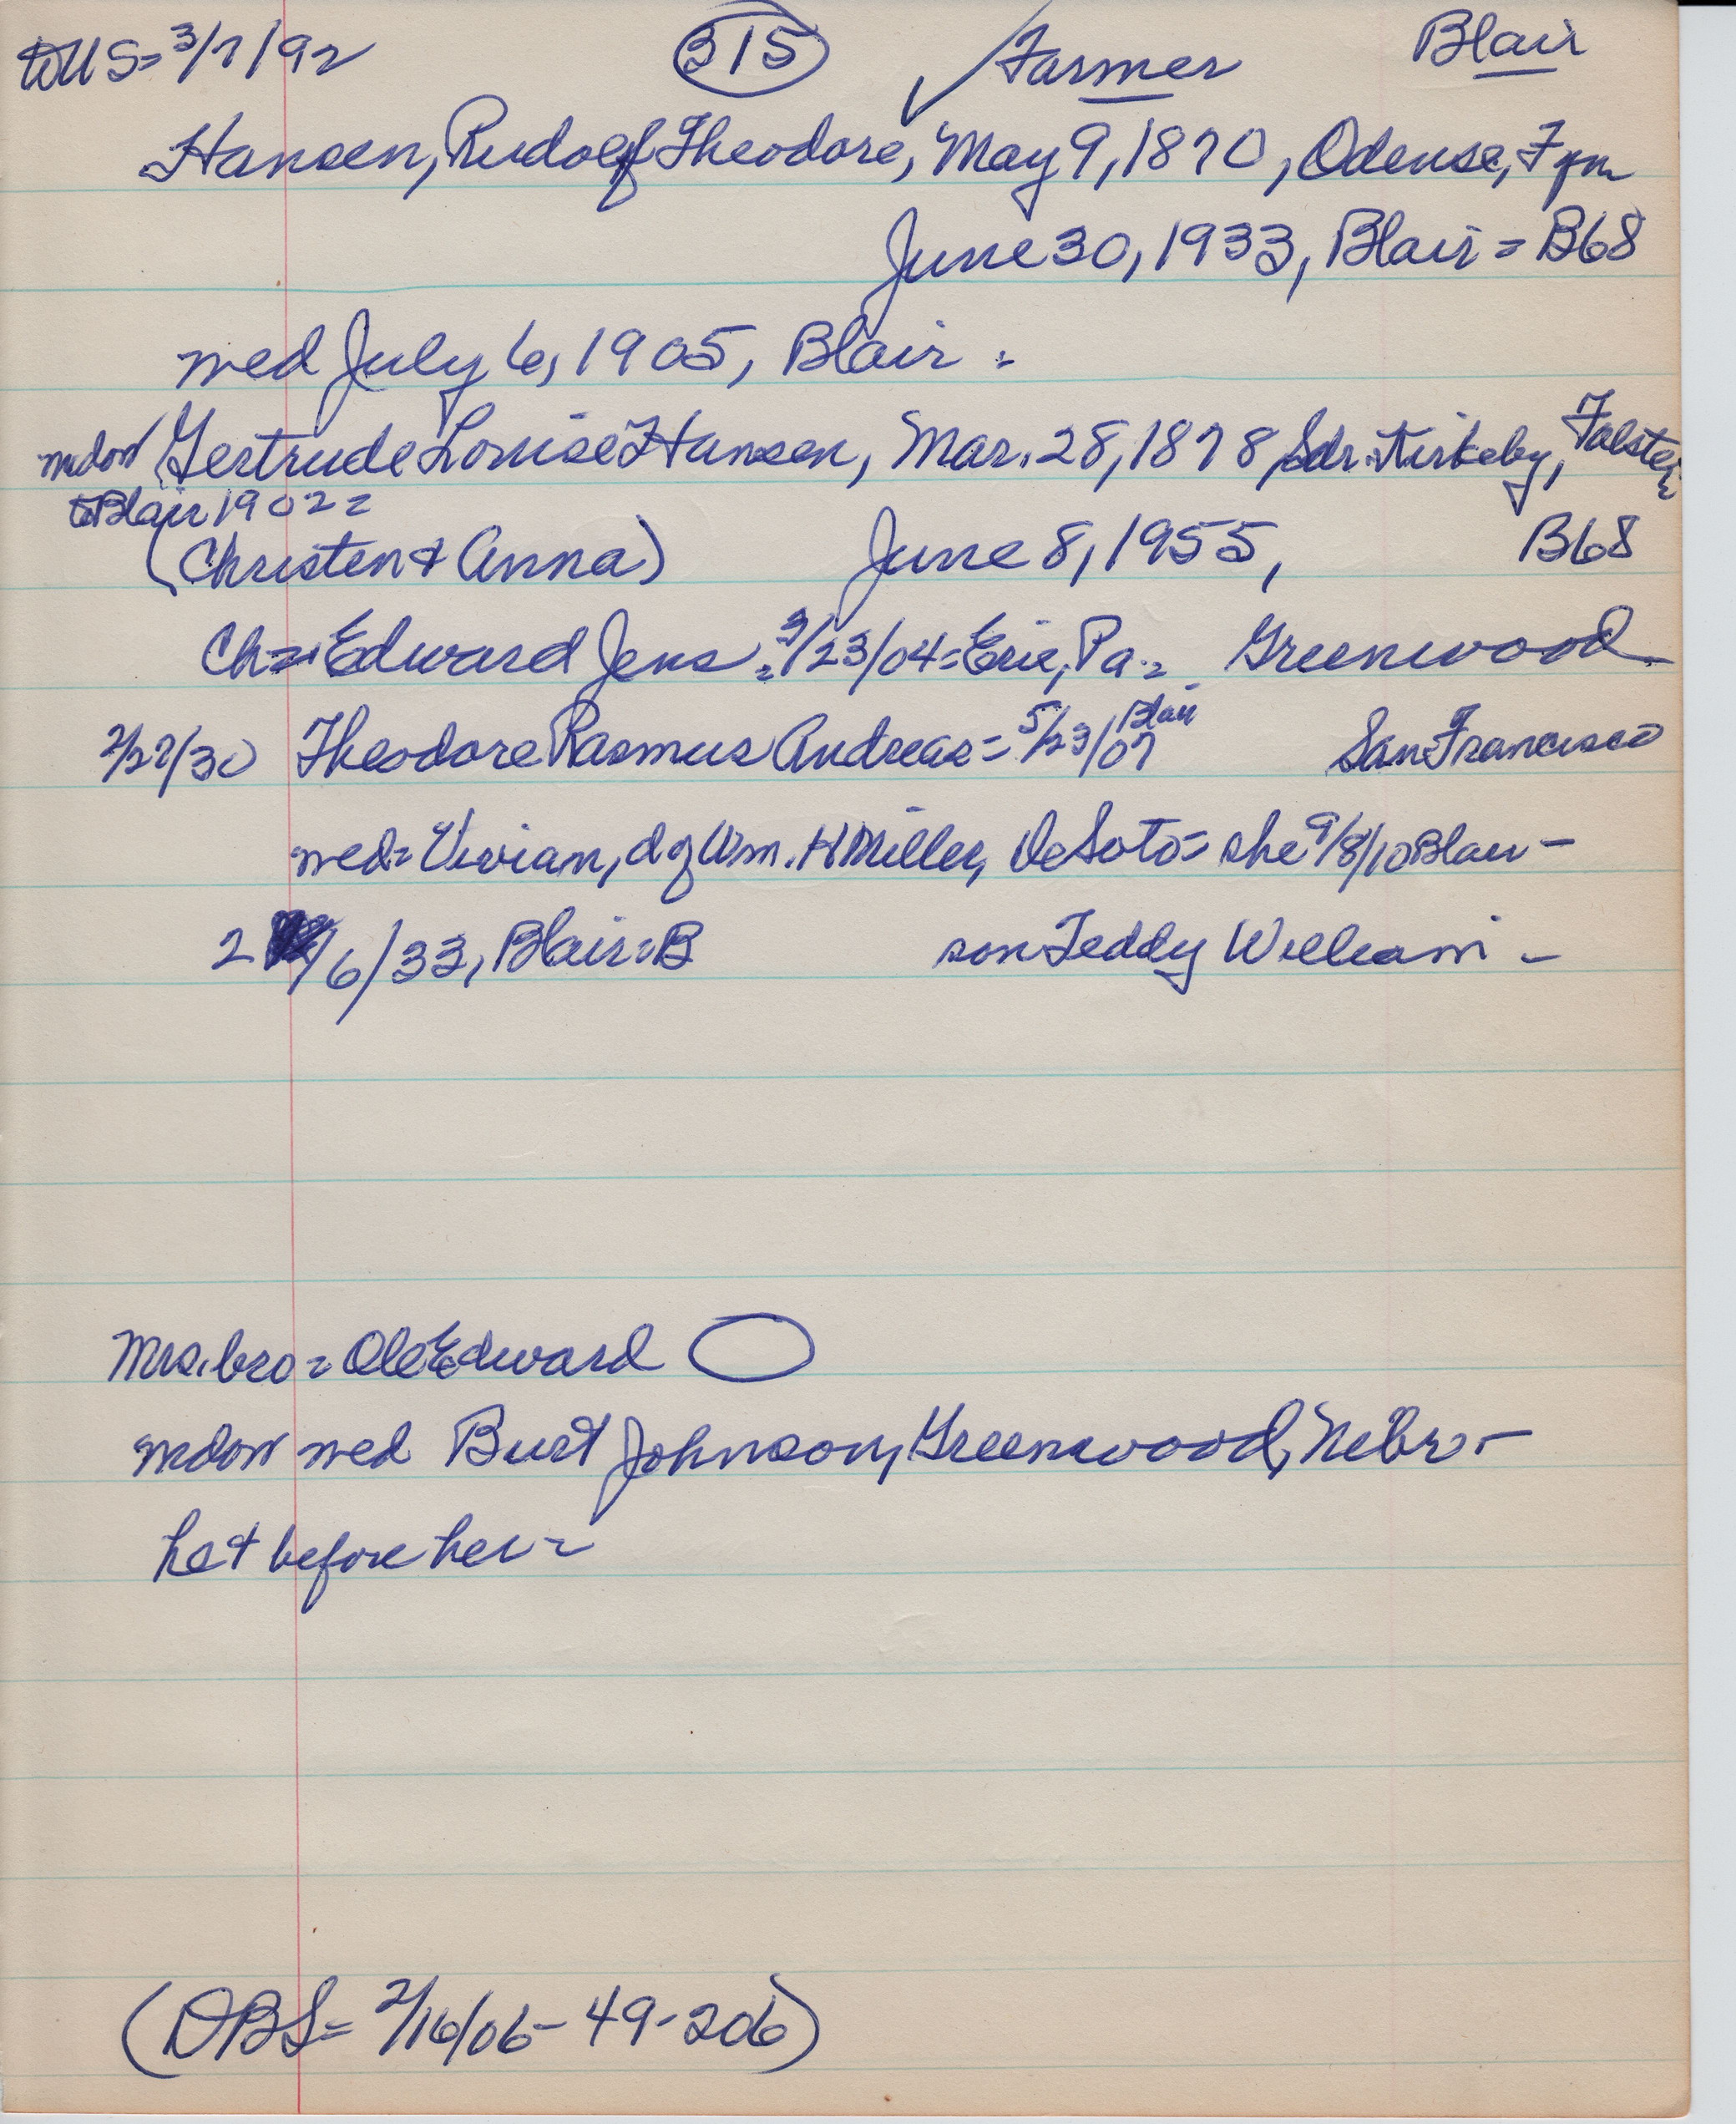 to US = 3/7/92 315 ✓ Farmer Blair
Hansen, Rudolf Theodore, May 9, 1870, Odense, Fyn
June 30, 1933, Blair = B68
wed July 6, 1905, Blair =
Gertrude Louise Hansen, Mar. 28, 1878, Sdr. Kirkeby, Falster
to Blair 1902 =
(Christen & Anna) June 8, 1955, B68
Ch = Edward Jens = 3/23/04 = Erie, Pa. = Greenwood
2/27/30 Theodore Rasmus Andreas = 5/23/07 Blair San Francisco
wed = Vivian, d of Wm. H Miller, DeSoto = she 9/8/10 Blair -
2 /6/33, Blair = B son Teddy William -
Mrs. bro = Ole Edward
wed Burt Johnson, Greenwood, Nebr. -
he + before her =
(DBS = 2/16/06 - 49-206)